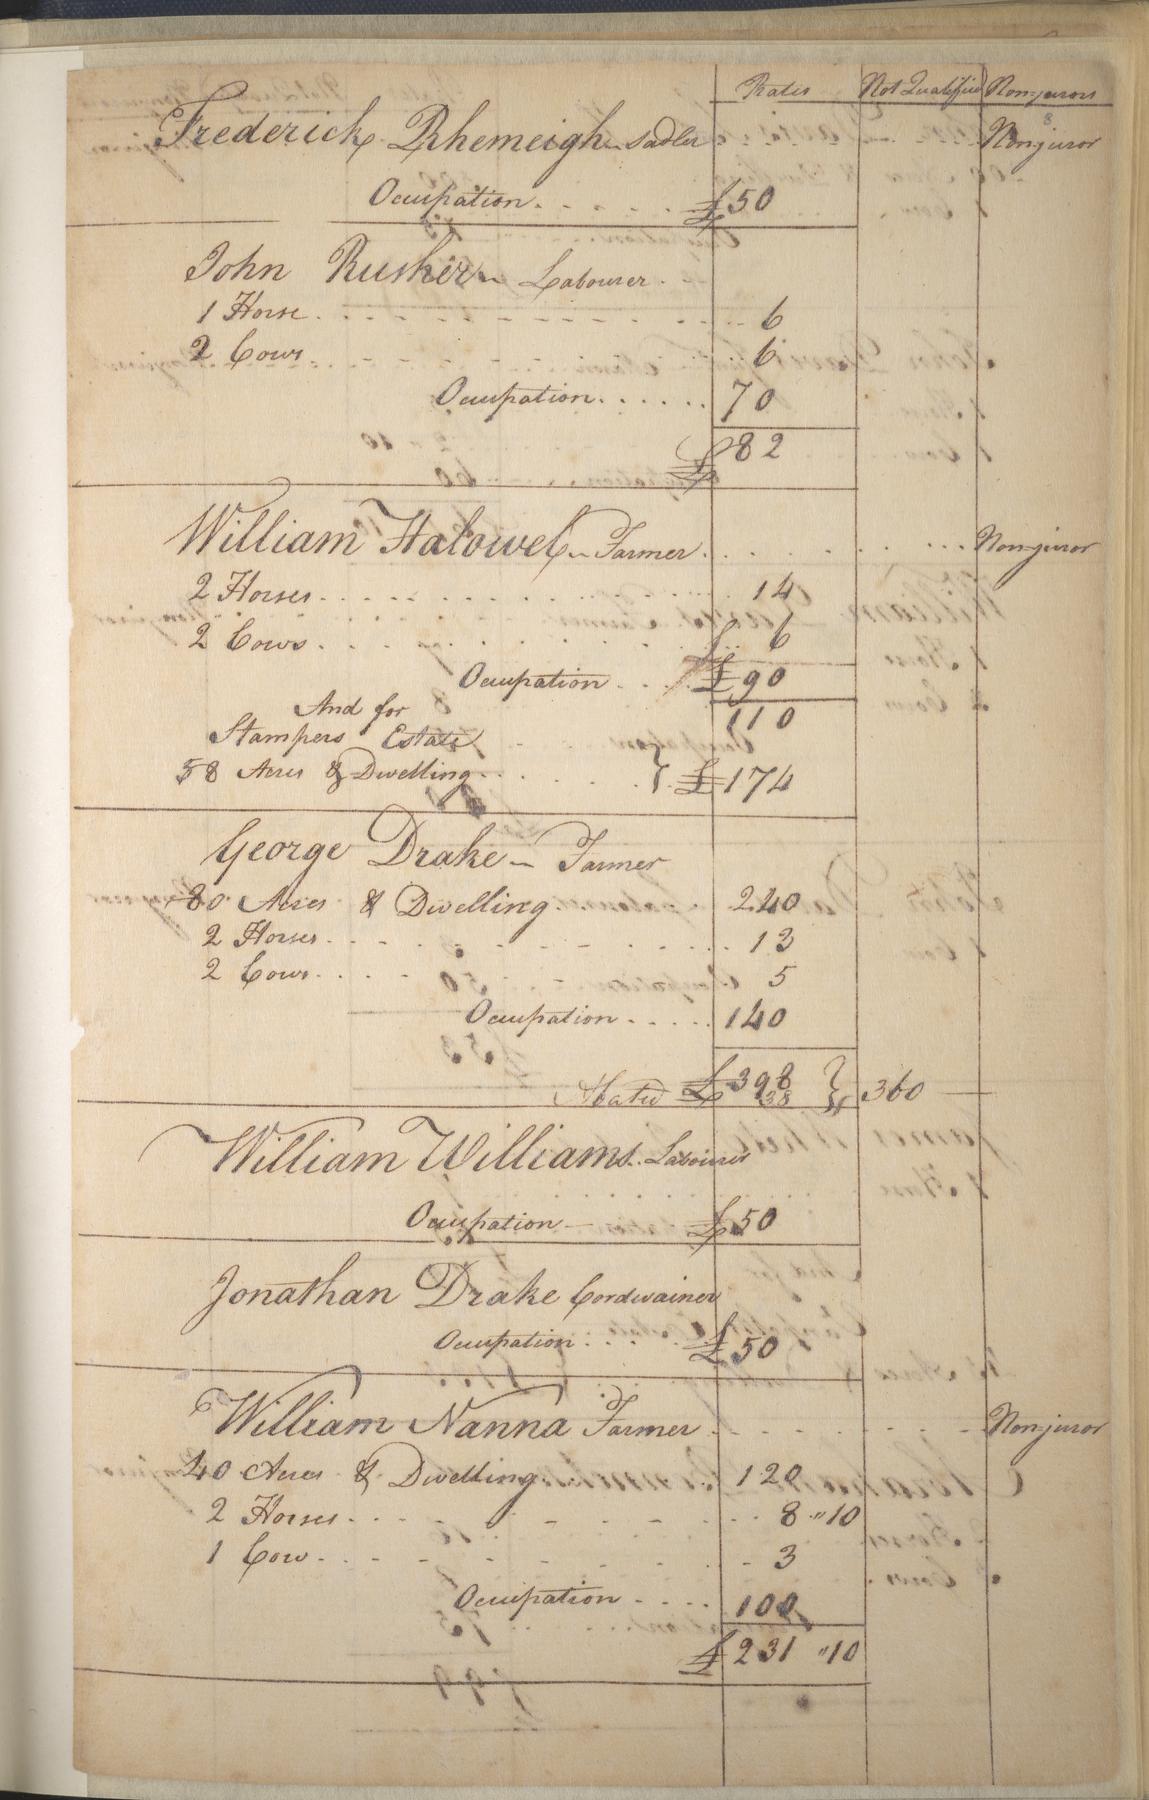 Rates Not Qualified Non-jurors
8
Frederick Rhemeigh Sadler Non-juror
Occupation £50
John Rusher Labourer
1 Horse 6
2 Cows 6
Occupation 70
£82
William Halowel Farmer Non-juror
2 Horses 14
2 Cows 6
Occupation £90
And for 110
Stampers Estate
58 Acres & Dwelling } £174
George Drake Farmer
80 Acres & Dwelling 240
2 Horses 13
2 Cows 5
Occupation 140
£398 } 360
Abated 38
William Williams Labourer
Occupation £50
Jonathan Drake Cordwainer
Occupation £50
William Nanna Farmer Non-juror
40 Acres & Dwelling 120
2 Horses 8 "10
1 Cow 3
Occupation 100
£231 "10